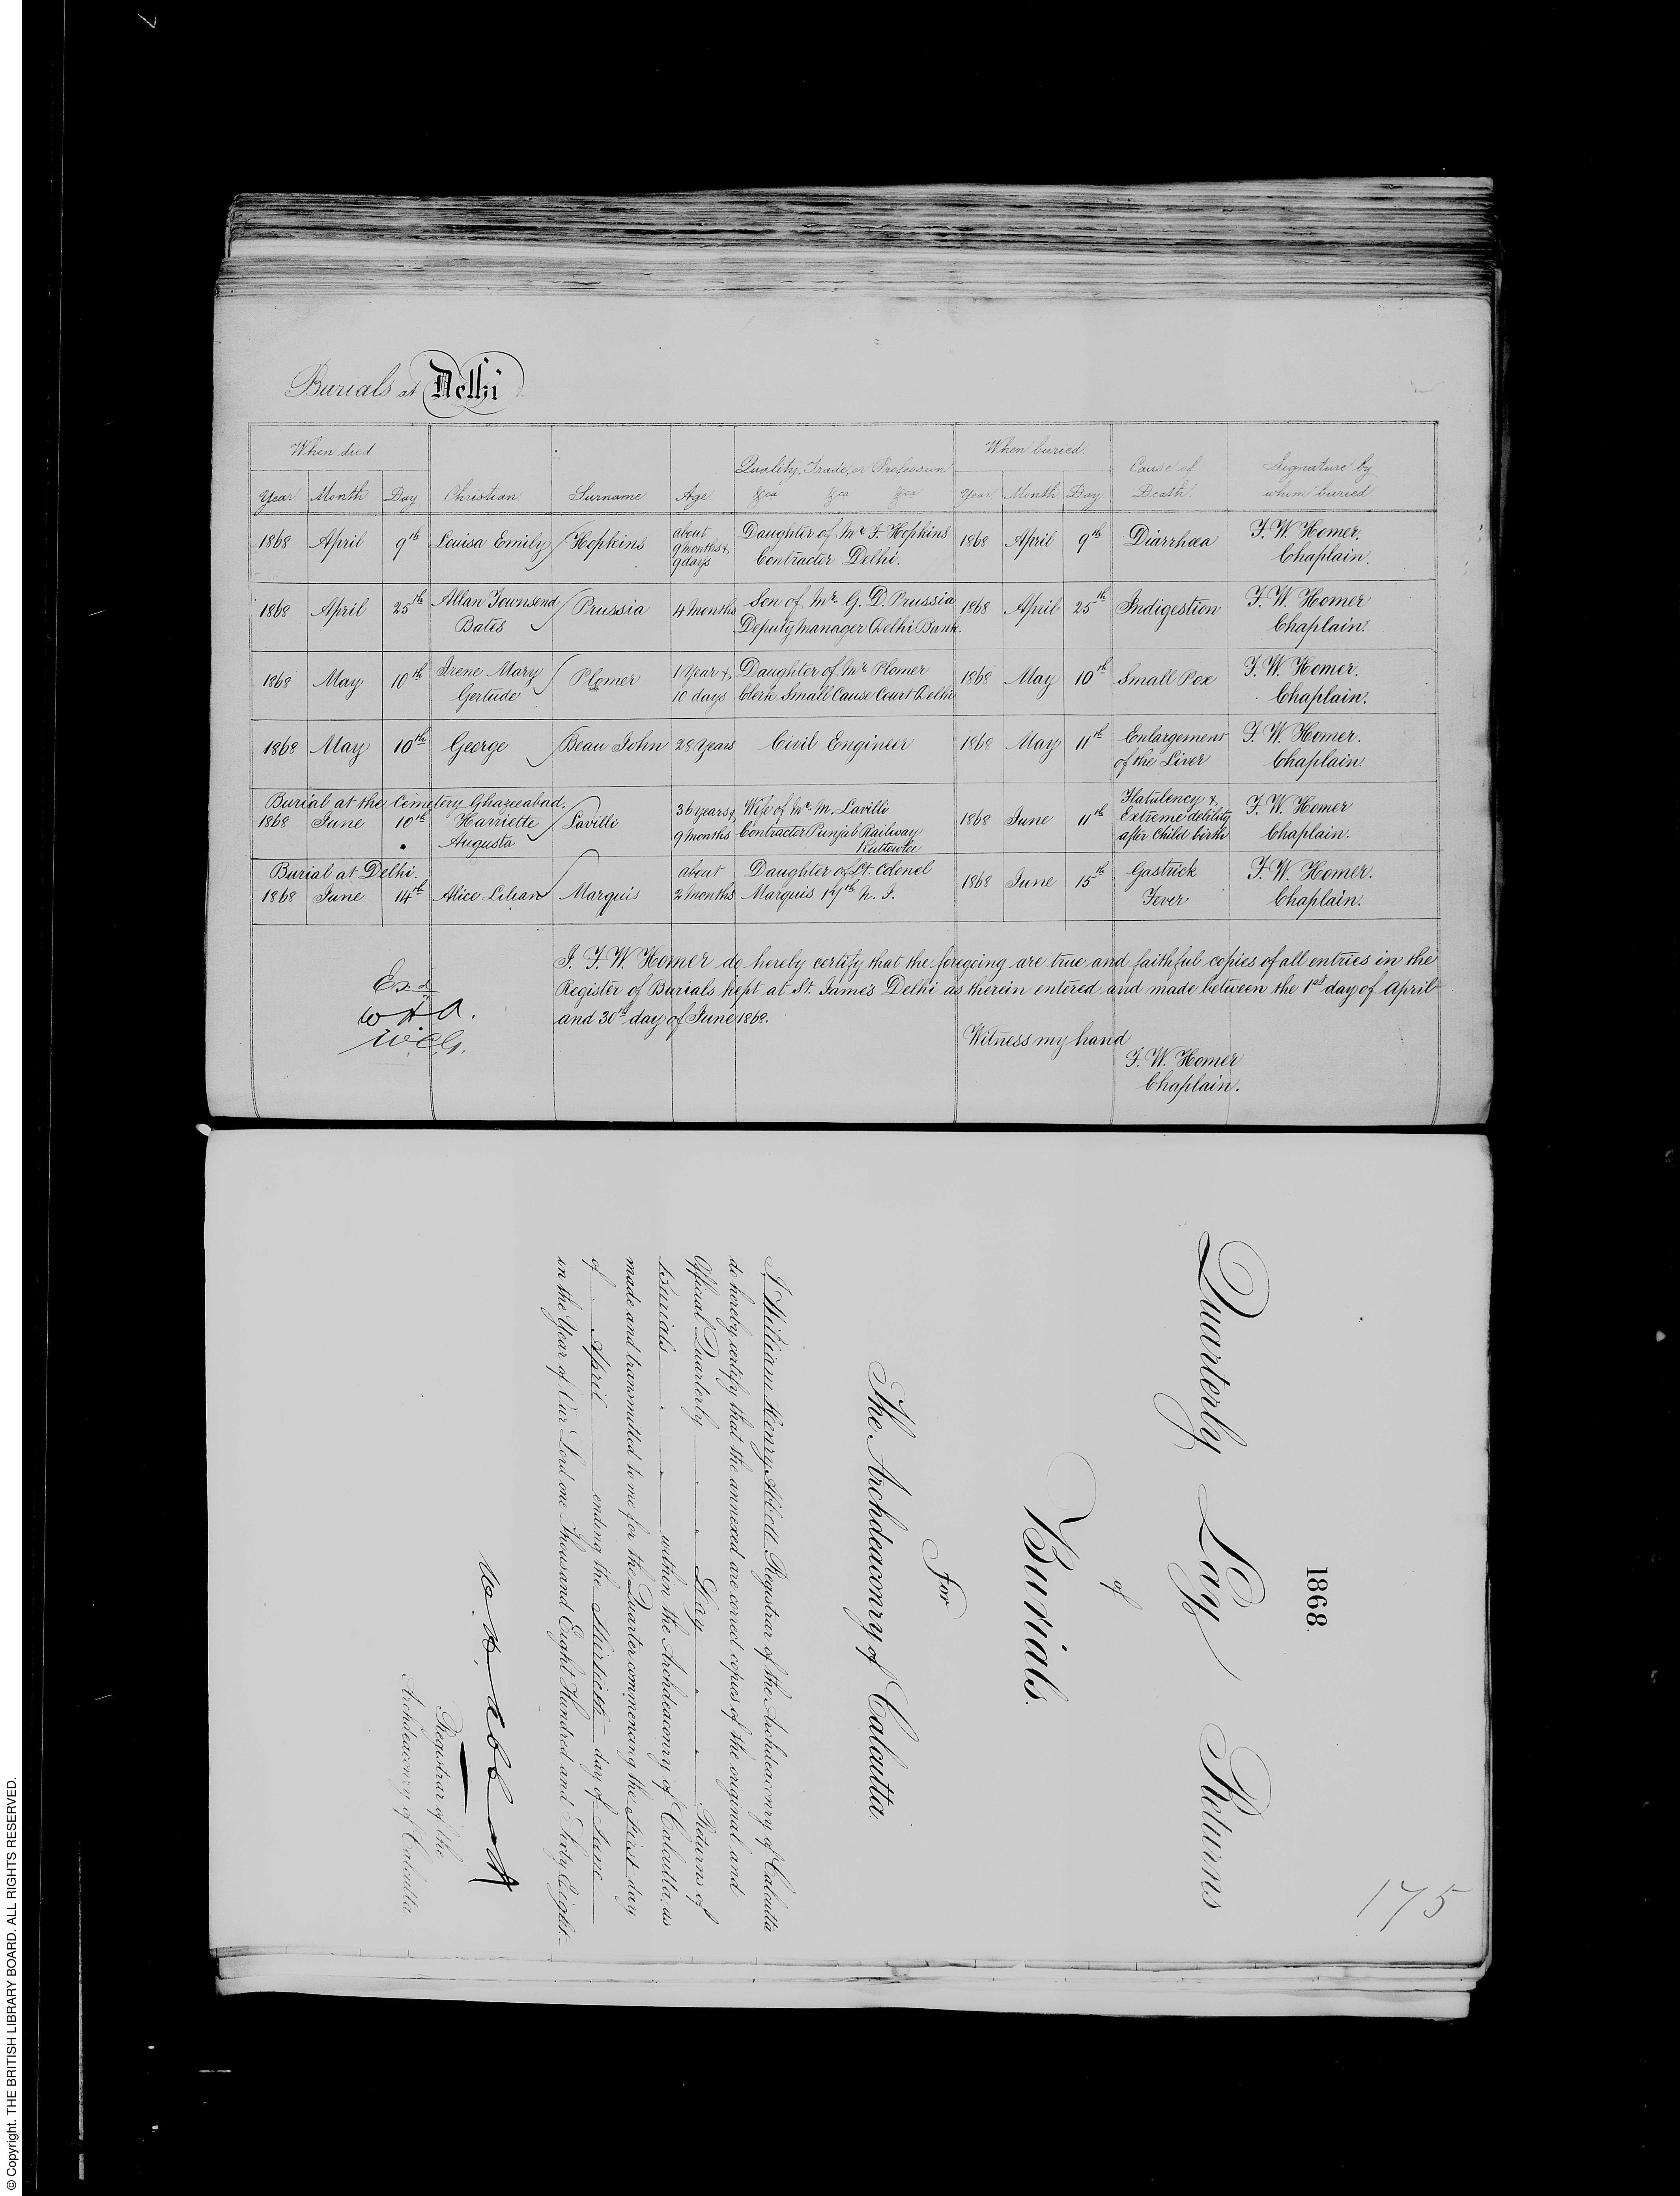 Burials at Delhi
When died
When buried
Quality, Trade, or Profession
Cause of
Signature by
Year Month Day Christian Surname Age &ca &ca &ca Year Month Day Death whom buried
1868 April 9th Louisa Emily Hopkins about 9 months & 9 days Daughter of Mr F. Hopkins Contractor Delhi. 1868 April 9th Diarrhœa F. W. Homer. Chaplain.
1868 April 25th Allan Townsend Bates Prussia 4 Months Son of Mr. G. D. Prussia Deputy Manager Delhi Bank. 1868 April 25th Indigestion F. W. Homer Chaplain.
1868 May 10th Irene Mary Gertude Plomer 1 Year & 10 days Daughter of Mr Plomer Clerk Small Cause Court Delhi 1868 May 10th Small Pox F. W. Homer. Chaplain.
1868 May 10th George Beau John 28 Years Civil Engineer 1868 May 11th Enlargement of the Liver F. W. Homer. Chaplain.
Burial at the Cemetery Ghazeeabad.
1868 June 10th Harriette Augusta Lavilli 36 years & 9 months Wife of Mr. M. Lavilli Contractor Punjab Railway 1868 June 11th Flatulency & Extreme debility after Child birth F. W. Homer Chaplain.
Burial at Delhi.
1868 June 14th Alice Lilian Marquis about 2 months Daughter of Lt. Colonel Marquis 17th N. I. 1868 June 15th Gastrick Fever F. W. Homer. Chaplain.
I. F. W. Homer do hereby certify that the foregoing are true and faithful copies of all entries in the
Register of Burials kept at St. James Delhi as therein entered and made between the 1st day of April
and 30th day of June 1868.
Witness my hand
F. W. Homer
Chaplain.
Exd
W H A.
W.C.G.
175
1868.
Quarterly Lay Returns
of
Burials.
For
The Archdeaconry of Calcutta.
I William Henry Abbott Registrar of the Archdeaconry of Calcutta
do hereby certify that the annexed are correct copies of the original and
Official Quarterly Lay Returns of
Burials within the Archdeaconry of Calcutta, as
made and transmitted to me for the Quarter commencing the First day
of April ending the Thirtieth day of June
in the Year of Our Lord one Thousand Eight Hundred and Sixty Eight.
W. H. Abbott
Registrar of the
Archdeaconry of Calcutta
© Copyright. THE BRITISH LIBRARY BOARD. ALL RIGHTS RESERVED.